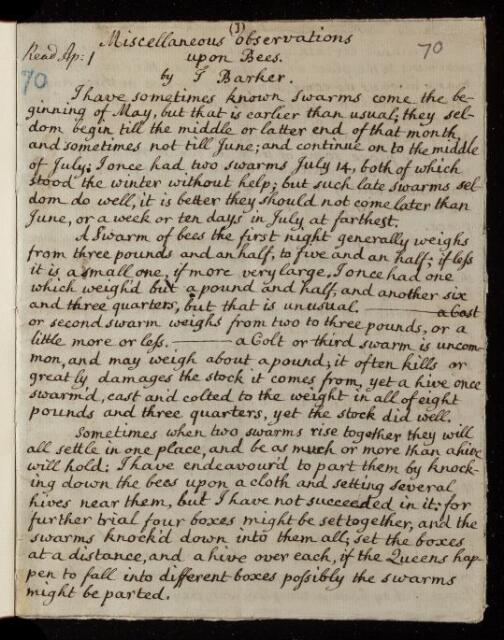 (1)
Miscellaneous observations
70
Read Ap: 1
upon Bees.
70
by T Barker.
I have sometimes known swarms come the be-
ginning of May, but that is earlier than usual; they sel-
dom begin till the middle or latter end of that month,
and sometimes not till June; and continue on to the middle
of July: I once had two swarms July 14, both of which
stood the winter without help; but such late swarms sel-
dom do well, it is better they should not come later than
June, or a week or ten days in July at farthest.
A Swarm of bees the first night generally weighs
from three pounds and an half, to five and an half; if leſs
it is a small one, if more very large. I once had one
which weigh'd but a pound and half, and another six
and three quarters, but that is unusual. — a Cast
or second swarm weighs from two to three pounds, or a
little more or leſs. — a Colt or third swarm is uncom-
mon, and may weigh about a pound; it often kills or
greatly damages the stock it comes from, yet a hive once
swarm'd, cast and colted to the weight in all of eight
pounds and three quarters, yet the stock did well.
Sometimes when two swarms rise together they will
all settle in one place, and be as much or more than a hive
will hold: I have endeavour'd to part them by knock-
ing down the bees upon a cloth and setting several
hives near them, but I have not succeeded in it: for
further trial four boxes might be set together, and the
swarms knock'd down into them all; set the boxes
at a distance, and a hive over each, if the Queens hap-
pen to fall into different boxes poſsibly the swarms
might be parted.